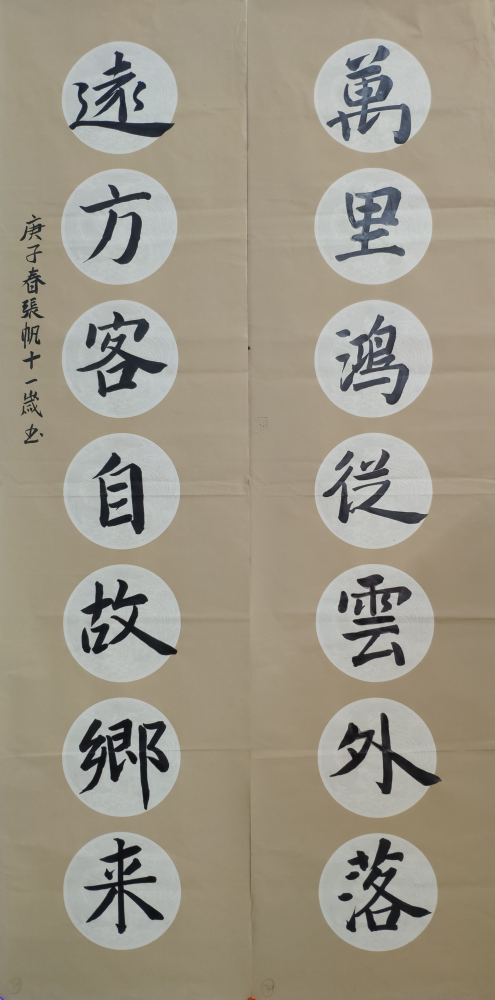 萬里鸿從雲外落
遠方客自故鄉来
庚子春張帆十一歲书